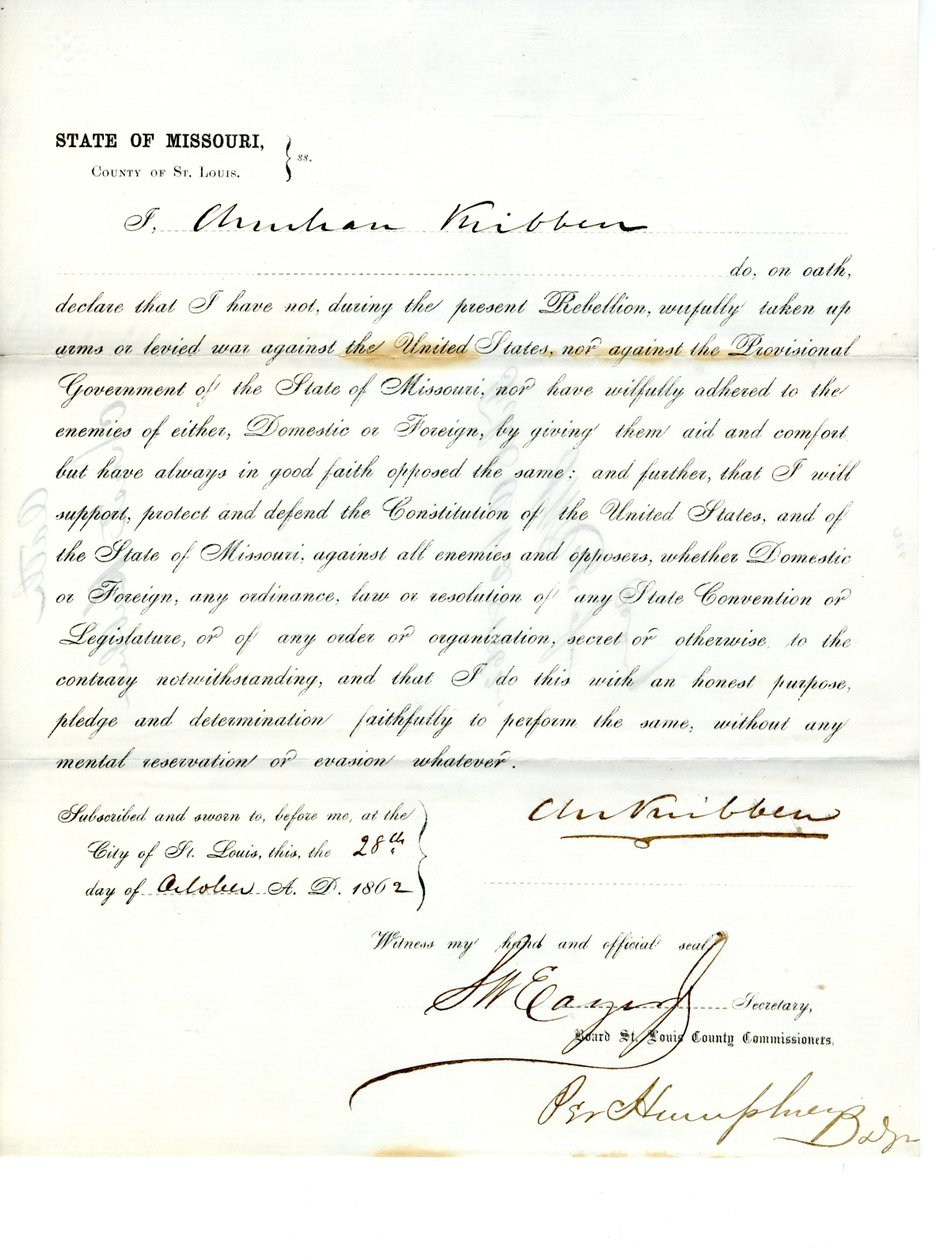 STATE OF MISSOURI,
COUNTY OF ST. LOUIS. } ss.
I, Christian Kribben
do, on oath,
declare that I have not, during the present Rebellion, wilfully taken up
arms or levied war against the United States, nor against the Provisional
Government of the State of Missouri, nor have wilfully adhered to the
enemies of either, Domestic or Foreign, by giving them aid and comfort
but have always in good faith opposed the same: and further, that I will
support, protect and defend the Constitution of the United States, and of
the State of Missouri, against all enemies and opposers, whether Domestic
or Foreign, any ordinance, law or resolution of any State Convention or
Legislature, or of any order or organization, secret or otherwise, to the
contrary notwithstanding, and that I do this with an honest purpose,
pledge and determination faithfully to perform the same, without any
mental reservation or evasion whatever.
Subscribed and sworn to, before me, at the
City of St. Louis, this, the 28th
day of October A. D. 1862
Chr Kribben
Witness my hand and official seal
Secretary,
Board St. Louis County Commissioners.
Per Humphrey